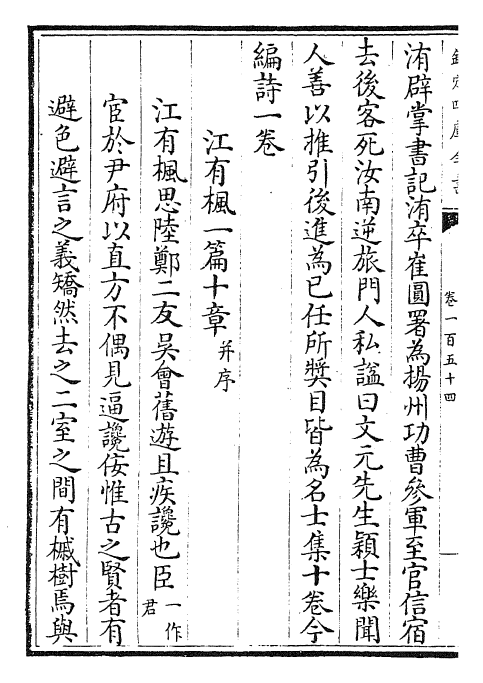 欽定四庫全書
卷一百五十四
洧辟掌書記洧卒崔圓署為揚州功曹參軍至官信宿
去後客死汝南逆旅門人私諡曰文元先生穎士樂聞
人善以推引後進為已任所獎目皆為名士集十卷今
編詩一卷
江有楓一篇十章并序
江有楓思陸鄭二友吳會舊遊且疾讒也臣一作君
宦於尹府以直方不偶見逼讒佞惟古之賢者有
避色避言之義矯然去之二室之間有槭樹焉與